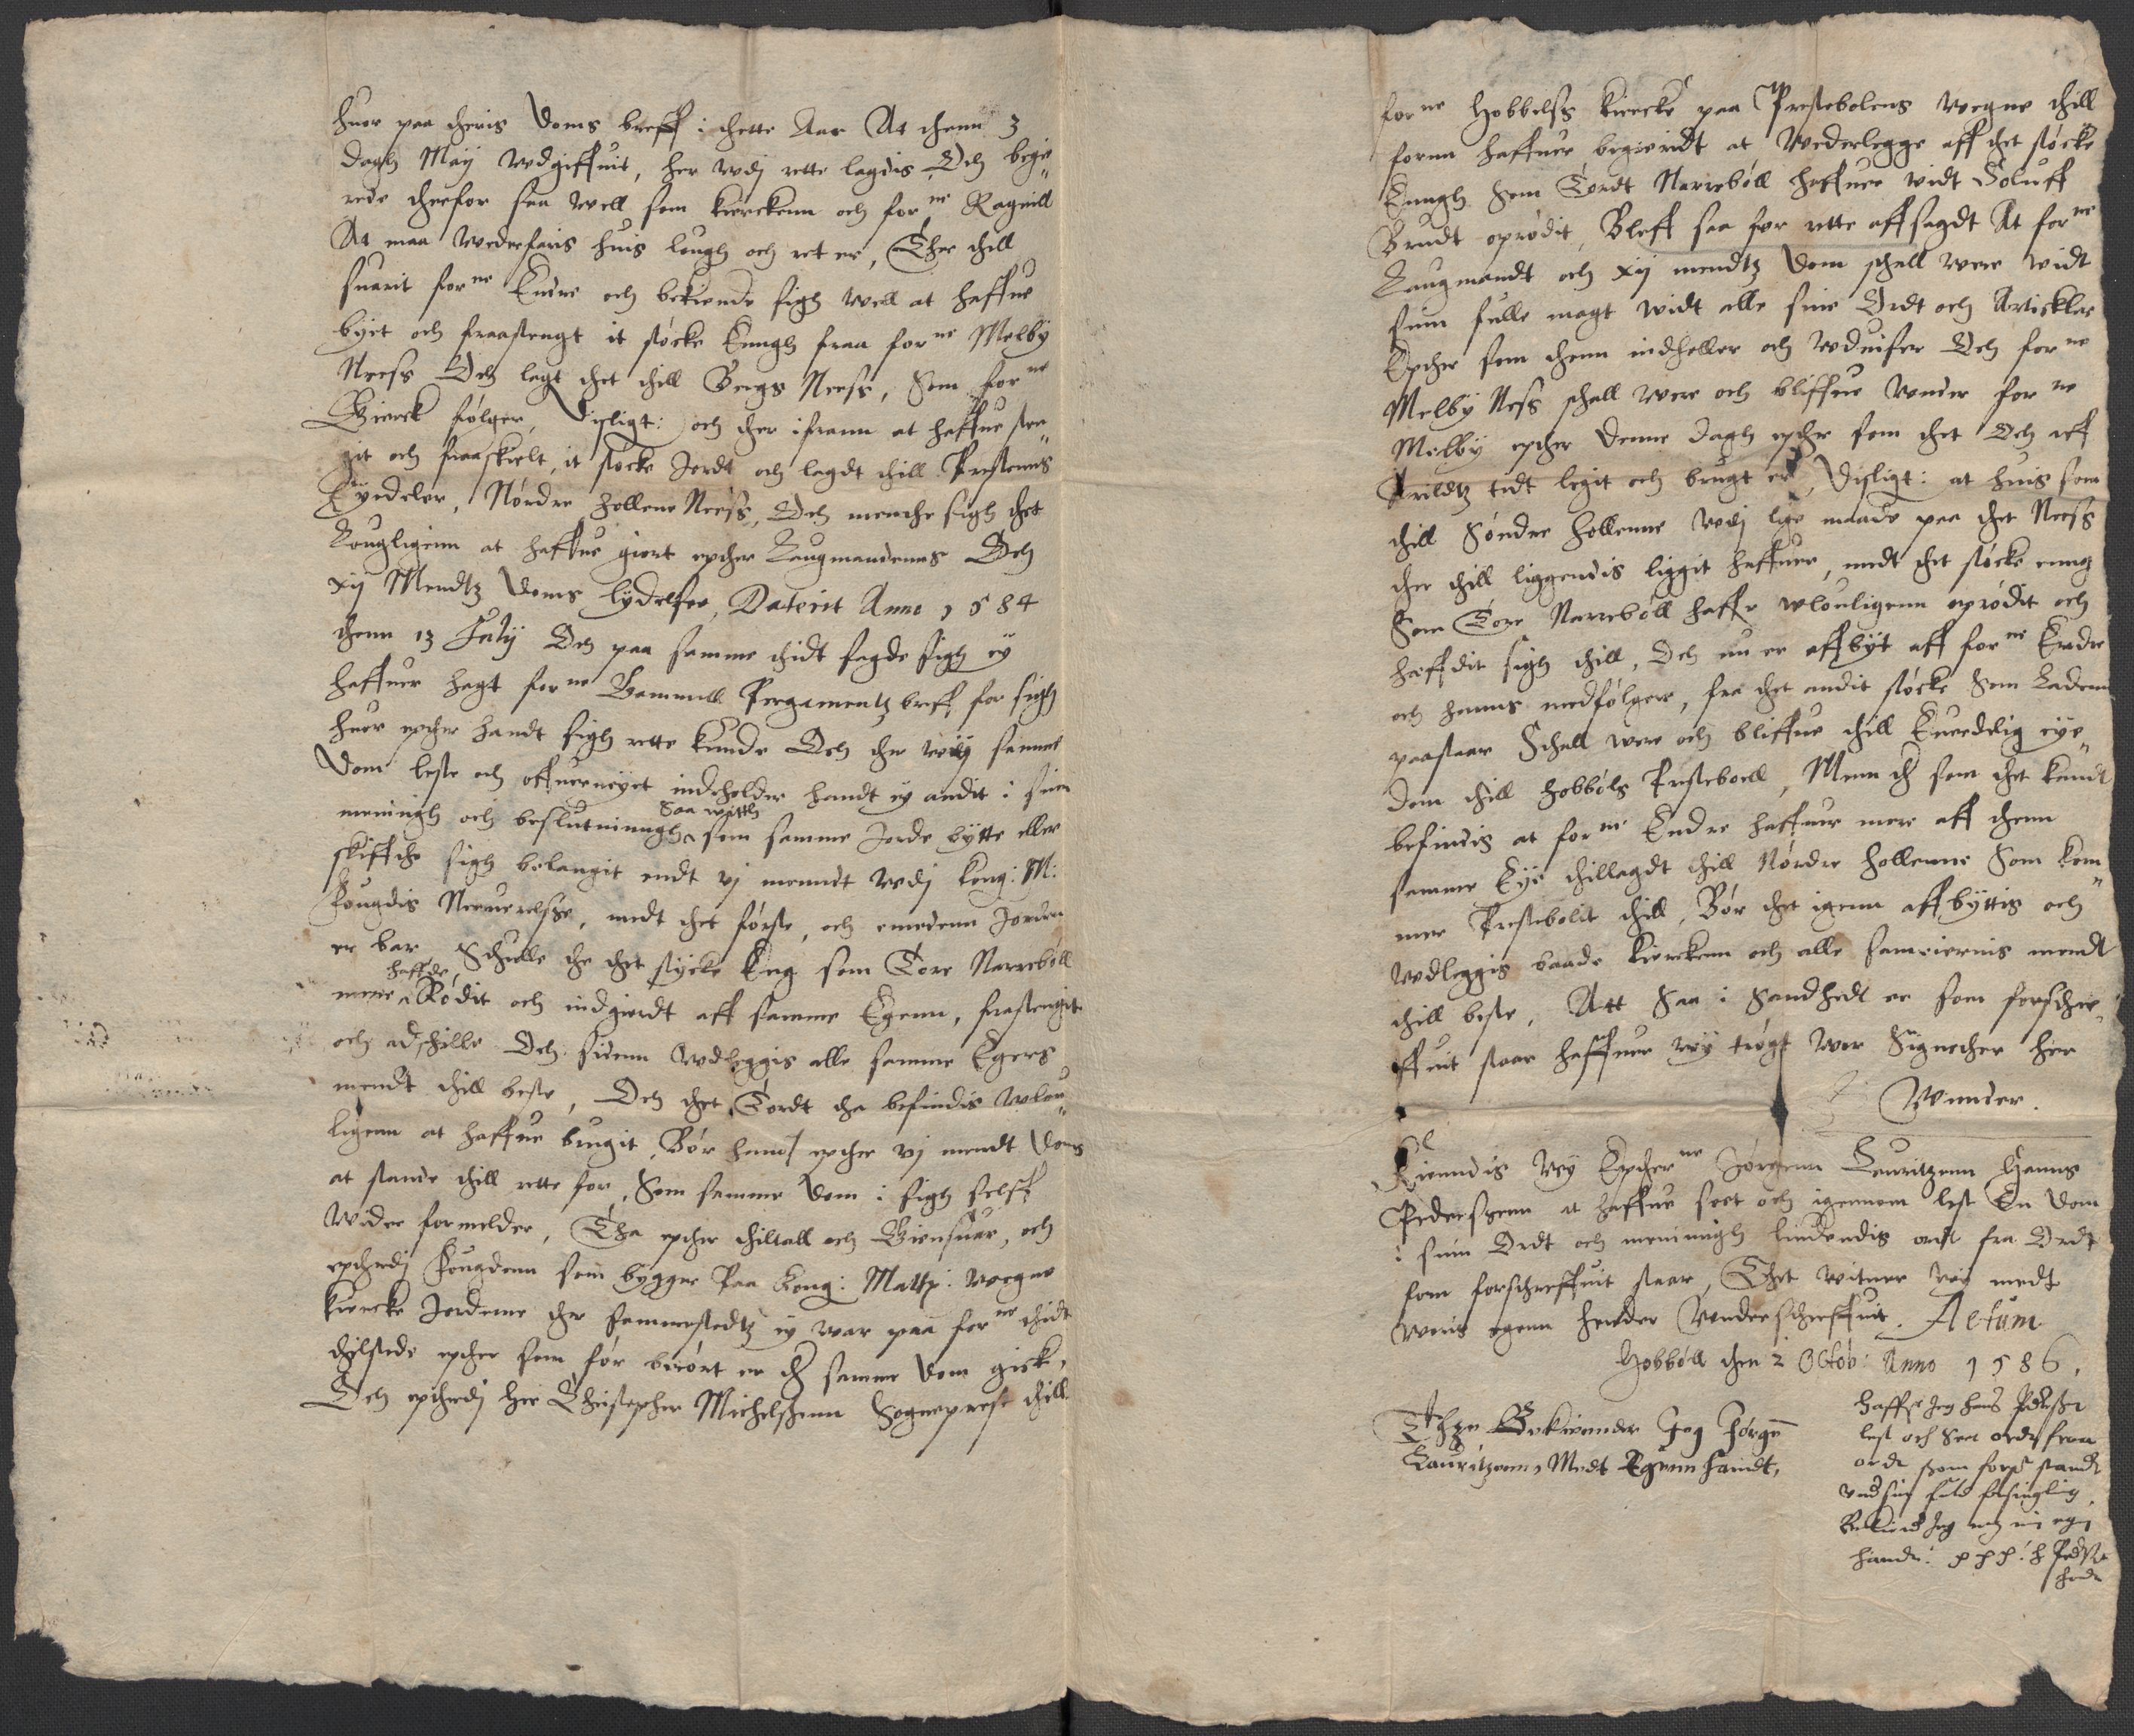 huor paa theris Doms breff i thette Aar At thenn 3
dagh Maij wdgiffuit, her wdj rette lagdis, Och begie
rede therfor saa well som kierckenn och forne Ragnill
At maa wederfaris huis lough och ret er, Ther thill
suarit forne Endre och bekiende sigh well at haffue
byet och fraastengt it støcke Enngh fraa forne Melby
Neess Och lagt thet thill Bergs Neess, som forne
Kierck følger, Disligt: och ther ifraa at haffue sten
git och fraaskielt, it støcke Jordt och lagdt thill Prestenns
Eyedeler, Nørdre Hollene Neess, Och mente sigh thet
Lougligenn at haffue giort epther Laugmandenns Och
xij Mendtz Doms lydelsse, Daterit Anno 1584
thenn 13 Julij Och paa samme thidt sagde sigh ey
haffuer hagt forne Gammell Pergamentz breff for sigh
huor epther handt sigh rette kunde Och ther wdj samme
Dom leste och offuerueyet indeholder handt ey andit i sinn
meningh och beslutningh saa witth som samme Jorde bytte eller
skiffthe sigh belangit endt vj menndt wdj Kong: M:
Fougdis Neruerelsse, medt thet første, och emedenn Jorden
er bar Schulle the thet stycke Eng som Tore Narrebøll
mene haffde Rødit och indgierdt aff samme Egenn, frastengit
och adschille Och sidenn wdleggis alle samme Egers
mendt thill beste, Och thet Tordt tha befindis wlou
ligenn at haffue brugit, Bør hannd epther vj mendt Doms
at stande thill rette for, som samme Dom i sigh selff
wider formelder, Tha epther thiltall och Giensuar, och
epthrdj Fougdenn som bygger Paa Kong: Matts: wegne
kiercke Jorderne ther sammestedtz ey war paa forne thidt
thilstede epther som før berørt er then samme Dom gick,
Och epthrdj Her Christopher Michelssenn Sogneprest thill
forne Hobbelss kiercke paa Prestebolens wegne thill
forne haffuer begierdt at wederlegge aff thet støcke
Enngh som Tordt Narrebøll haffuer widt Soluff
Brudt oprødit, Bleff saa for rette affsagdt At forne
Laugmandt och xij mendtz Dom schall were widt
sinn fulle magt widt alle sine Ordt och Artickler
Epther som thenn indholler och wduiser Och forne
Melby Ness schall were och bliffue wnder forne
Melby epther Denne dagh epther som thet Och aff
Arildtz tidt legit och brugt er, Disligt: at huis som
thill Søndre Hollenne wdj lige maade paa thet Neess
ther thill liggendis liggit haffuer, medt thet støcke enng
som Tore Narrebøll haffr wlouligenn oprødit och
haffdit sigh thill, Och nu er affbyt aff forne Endre
och hanns medfølgere, fra thet andit støcke som Ladenn
paastaar Schall were och bliffue thill Euerdelig eye
dom thill Hobbøls Presteboell, Menn then som thet kandt
befindis at forne Endre haffuer mere aff thenn
samme Eye thillagdt thill Nørdre Hollenne som kom
mer Prestebolit thill, Bør thet igenn affbyttis och
wdleggis baade kierckenn och alle sameiernis mendt
thill beste, Att saa i Sandhedt er som forschre
ffuit staar haffuer wy trøgt wor Signether her
wnnder.
Kiendis wy Epthrne Jørgenn Lauritzenn Hanns
Pedersszenn at haffue seet och igennom lest En Dom
i sinn Ordt och meningh liudendis ordt fra Ordt
som forschreffuit staar, Thet witner wy medt
woris egenn hender Vnderschreffuit. Actum
Hobbøll then 2 Octob: Anno 1586.
Thze Bekiennder Jeg Jørgen
Lauritzenn, Medt Egenn Handt,
Haffr Jeg Hans Pederssen
lest och seet ordt fraa
ordt som forst standr
Bekiend Jeg mz min egen
handt: